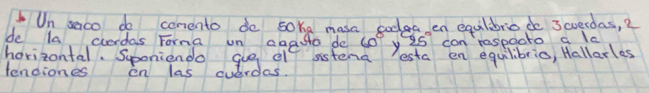 Un saco de cemento de 50Kg masa cuelga en equilibrio de 3 cuerdas, 2
de la cuerdas Forma un angulo de 60° y 25° con respecto a la
horizontal. Suponiendo que el sistema esta en equilibrio, Hallar las
tenciones en las cuerdas.